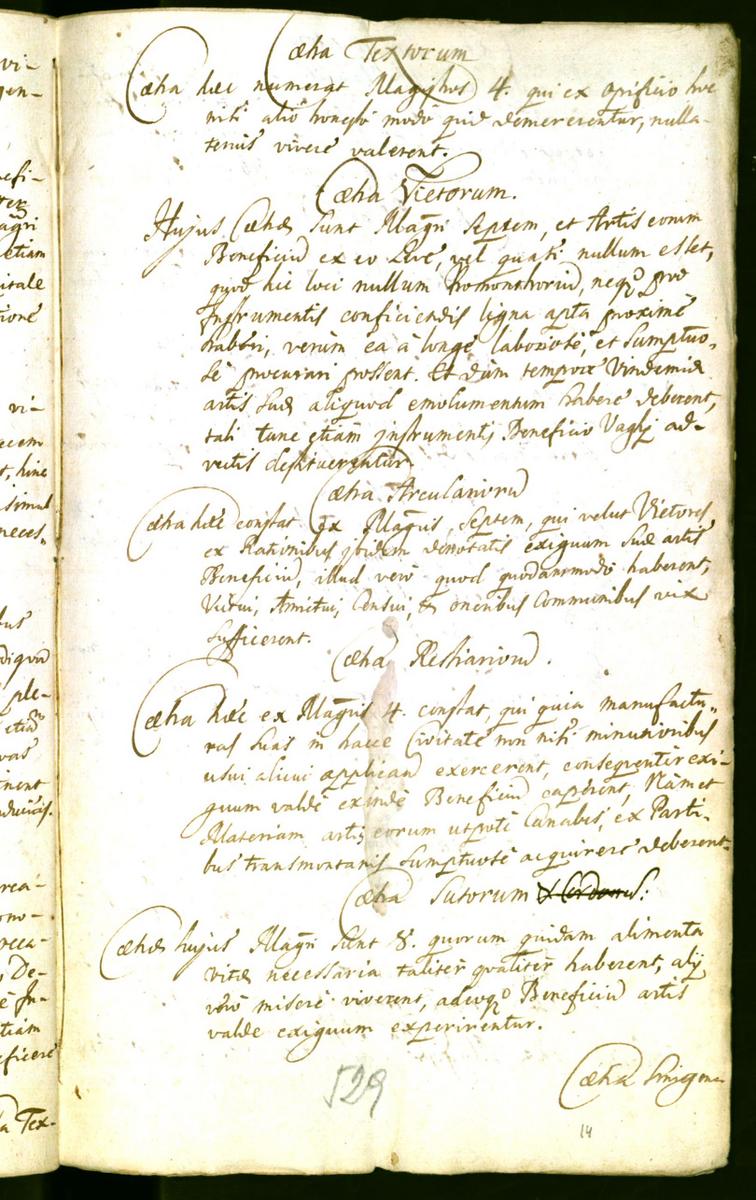 vi-
gen-
Cæha Textorum
Cæha hæc numerat Magistros 4. qui ex opificio hoc
nisi alio honesto modo quid demererentur, nulla-
tenus vivere valerent.
Cæha Vietorum.
Hujus Cæhæ sunt Magri Septem, et Artis eorum
Beneficiũ ex eo leve, vel quasi nullum esset,
quod hic loci nullum Promonthoriũ, neq3 pro
Instrumentis conficiendis ligna apta proxime
haberi, verum ea à longè laboriosè, et sumptuo-
sè procurari possent. Et dum tempore Vindemiæ
artis suæ aliquod emolumentum habere deberent,
tali tunc etiam instrumenti Beneficio Vagis ad-
vectis destituerentur.
Cæha Arculariorũ
Cæha hæc constat ex Magris, Septem, qui velut Vietores
ex Rationibus ibidem denotatis exiguum suæ artis
Beneficiũ, illud verò quod quodammodo haberent,
Victui, Amictui, Censui, & oneribus Communibus vix
sufficerent.
Cæha Restiariorũ.
Cæha hæc ex Magris 4. constat, qui quia manufactu-
ras suas in hacce Civitate non nisi minutioribus
usui alicui applicand exercerent, consequenter exi-
guum valdè exinde Beneficiũ caperent, Nam et
Materiam artis eorum utpote Canabis, ex Parti-
bus transmontanis sumptuosè acquirere deberent.
Cæha Sutorum
Cæhæ hujus Magri sunt 8. quorum quidam alimenta
vitæ necessaria taliter qualiter haberent, alij
verò miserè viverent, adeoq3 Beneficiũ artis
valde exiguum experirentur.
Cæha
529
14